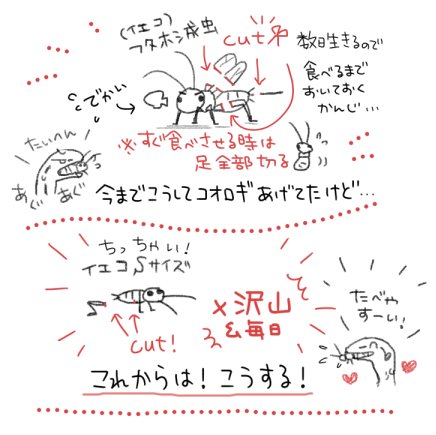 (イエコ)
フタホシ成虫
cut
数日生きるので
食べるまで
おいておく
かんじ…
でかい
※すぐ食べさせる時は
足全部切る
たいへん
あぐ
あぐ
今までこうしてコオロギあげてたけど…
ちっちゃい!
イエコSサイズ
cut!
×沢山
&毎日
たべや
すーい!
これからは!こうする!